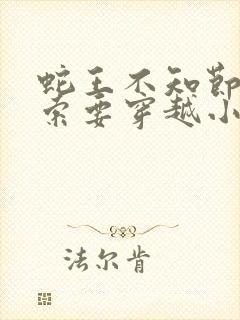 蛇王不知节
索要穿越小
法尔肯